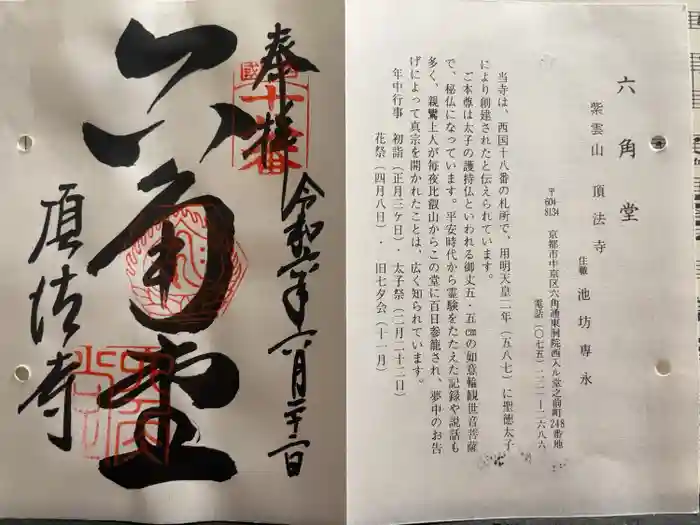 六角堂
紫雲山 頂法寺
住職 池坊専永
〒604-8134 京都市中京区六角通東洞院西入ル堂之前町248番地
電話(〇七五)二二一-二六八六
当寺は、西国十八番の札所で、用明天皇二年(五八七)に聖徳太子
により創建されたと伝えられています。
ご本尊は太子の護持仏といわれる御丈五・五㎝の如意輪観世音菩薩
で、秘仏になっています。平安時代から霊験をたたえた記録や説話も
多く、親鸞上人が毎夜比叡山からこの堂に百日参籠され、夢中のお告
げによって真宗を開かれたことは、広く知られています。
年中行事 初詣(正月三ヶ日)・太子祭(二月二十二日)
花祭(四月八日)・旧七夕会(十一月)
奉拝
六角堂
頂法寺